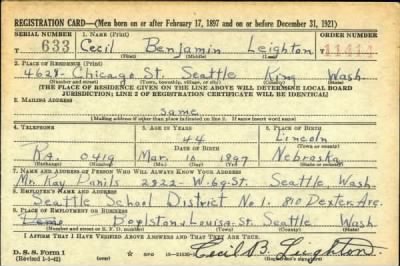 REGISTRATION CARD—(Men born on or after February 17, 1897 and on or before December 31, 1921)
SERIAL NUMBER 1. NAME (Print) ORDER NUMBER
633 Cecil Benjamin Leighton 11414
(First) (Middle) (Last)
2. PLACE OF RESIDENCE (Print)
4628- Chicago St. Seattle King Wash
(Number and street) (Town, township, village, or city) (County) (State)
[THE PLACE OF RESIDENCE GIVEN ON THE LINE ABOVE WILL DETERMINE LOCAL BOARD
JURISDICTION; LINE 2 OF REGISTRATION CERTIFICATE WILL BE IDENTICAL]
3. MAILING ADDRESS
Same
[Mailing address if other than place indicated on line 2. If same insert word same]
4. TELEPHONE 5. AGE IN YEARS 6. PLACE OF BIRTH
44 Lincoln
DATE OF BIRTH (Town or county)
Ra. 0419 Mar. 10 1897 Nebraska
(Exchange) (Number) (Mo.) (Day) (Yr.) (State or country)
7. NAME AND ADDRESS OF PERSON WHO WILL ALWAYS KNOW YOUR ADDRESS
Mr. Ray 2922-W-69-St. Seattle, Wash.
8. EMPLOYER'S NAME AND ADDRESS
Seattle School District No 1. 810 Dexter Ave.
9. PLACE OF EMPLOYMENT OR BUSINESS
Boylston & Louisa-St. Seattle Wash
(Number and street or R. F. D. number) (Town) (County) (State)
I AFFIRM THAT I HAVE VERIFIED ABOVE ANSWERS AND THAT THEY ARE TRUE.
D. S. S. Form 1
(Revised 1-1-42) (over) GPO Cecil B. Leighton
(Registrant's signature)